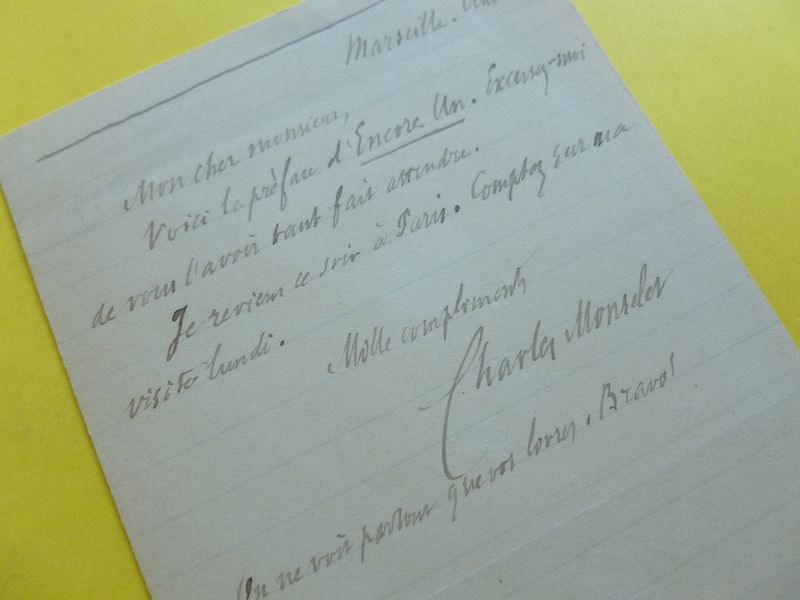 Marseille.
Mon cher monsieur,
Voici la préface d'Encore Un. Excusez-moi
de vous l'avoir tant fait attendre.
Je reviens ce soir à Paris. Comptez sur ma
visite lundi.
Mille compliments
Charles Monselet
On ne voit partout que vos livres. Bravo!